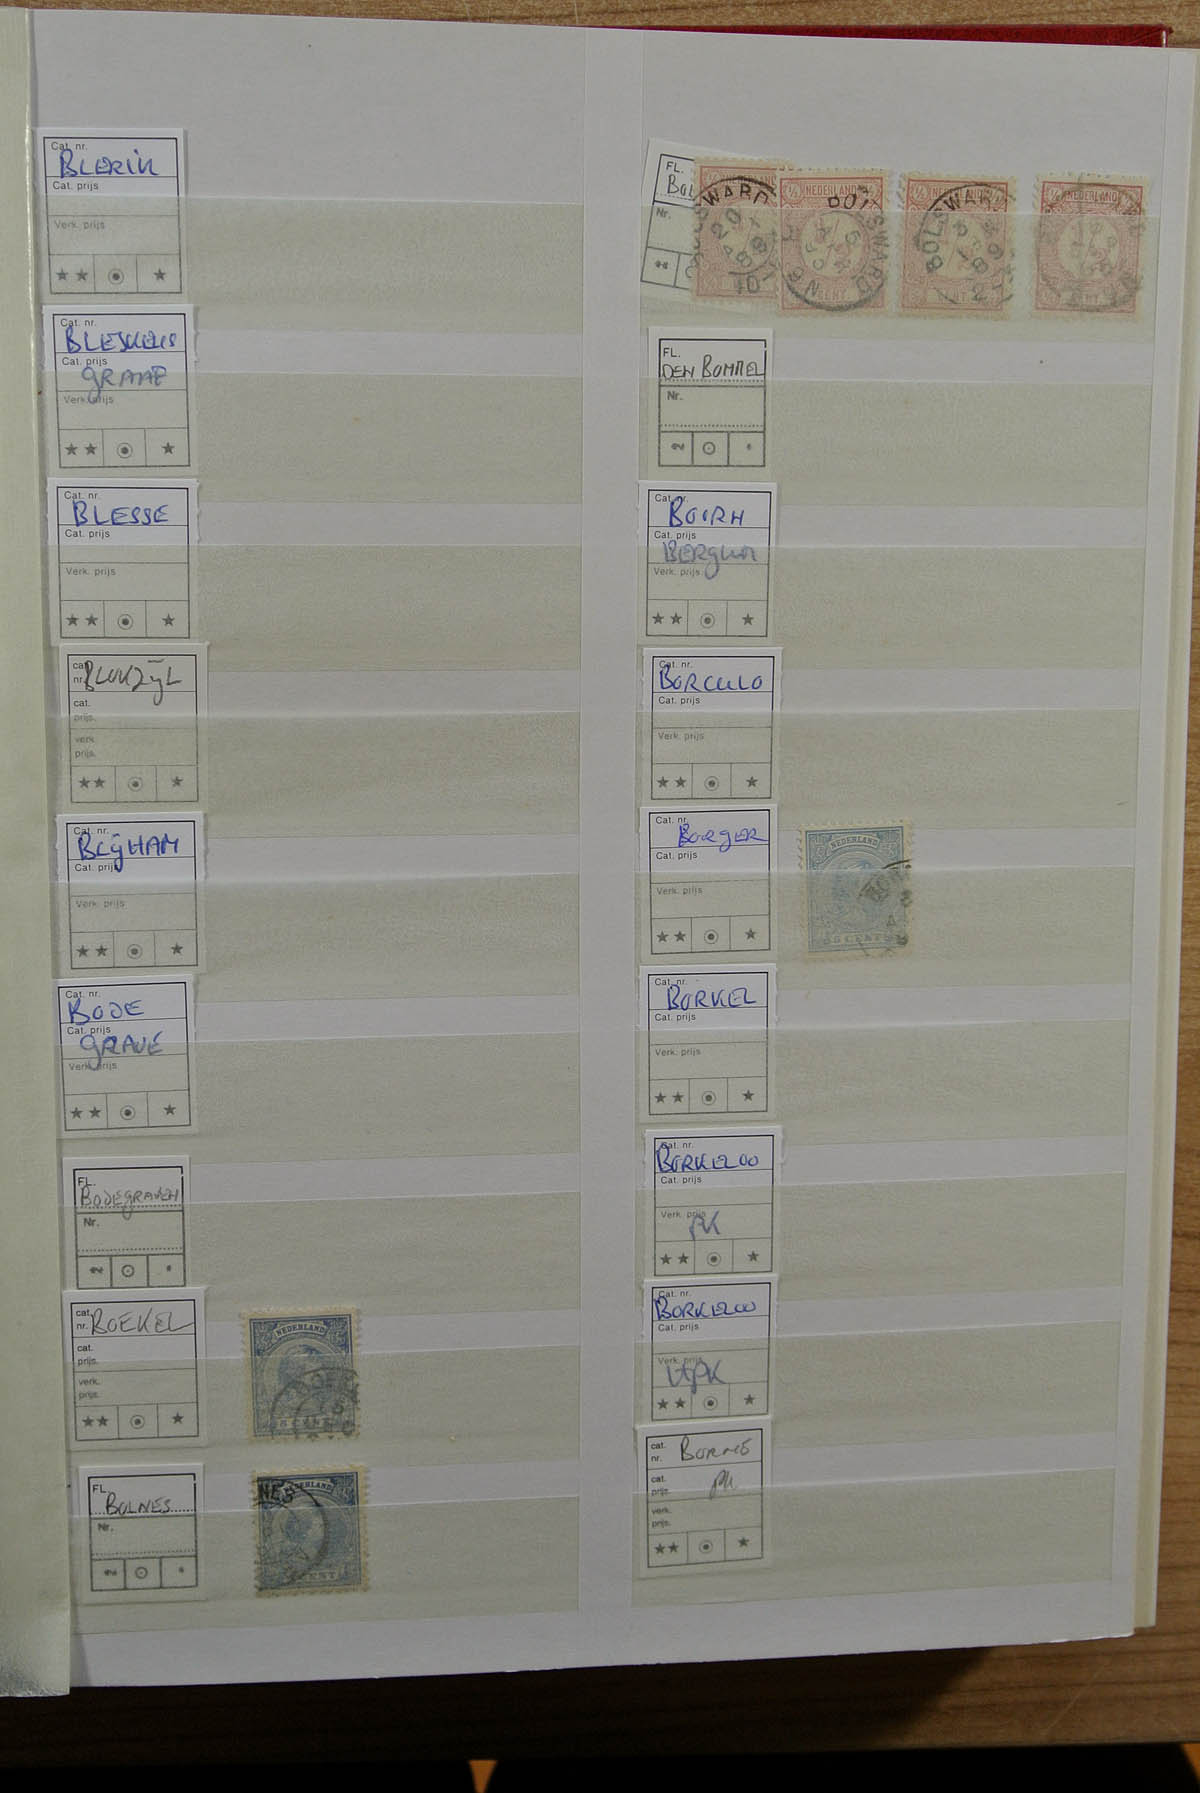 Cat. nr.
BLERIK
Cat. prijs
Verk. prijs
Cat. nr.
BLESKENS
Cat. prijs
GRAAF
Verk. prijs
Cat. nr.
BLESSE
Cat. prijs
Verk. prijs
cat.
nr. BLOKZIJL
cat.
prijs.
verk.
prijs.
Cat. nr.
Cat. prijs
Verk. prijs
Cat. nr.
BODE
Cat. prijs
GRAVE
Verk. prijs
FL.
BODEGRAVEN
Nr.
cat.
nr. BOEKEL
cat.
prijs.
verk.
prijs.
NEDERLAND
5 CENT
FL.
BOLNES
Nr.
NES
NEDERLAND
CENT
FL.
BOL
Nr.
NEDERLAND
SWARD
20
½ NEDERLAND ½
BOLSWARD
CENT
½ NEDERLAND
BOLSWARD
CENT
½ NEDERLAND
CENT
FL.
DEN BOMMEL
Nr.
Cat. nr.
BOORN
Cat. prijs
BERGUM
Verk. prijs
Cat. nr.
BORCULO
Cat. prijs
Verk. prijs
Cat. nr.
BORGER
Cat. prijs
Verk. prijs
NEDERLAND
5 CENT
Cat. nr.
BORKEL
Cat. prijs
Verk. prijs
Cat. nr.
BORKELOO
Cat. prijs
Verk. prijs
PK
Cat. nr.
BORKELOO
Cat. prijs
Verk. prijs
cat.
nr. BORNE
cat.
prijs.
verk.
prijs.